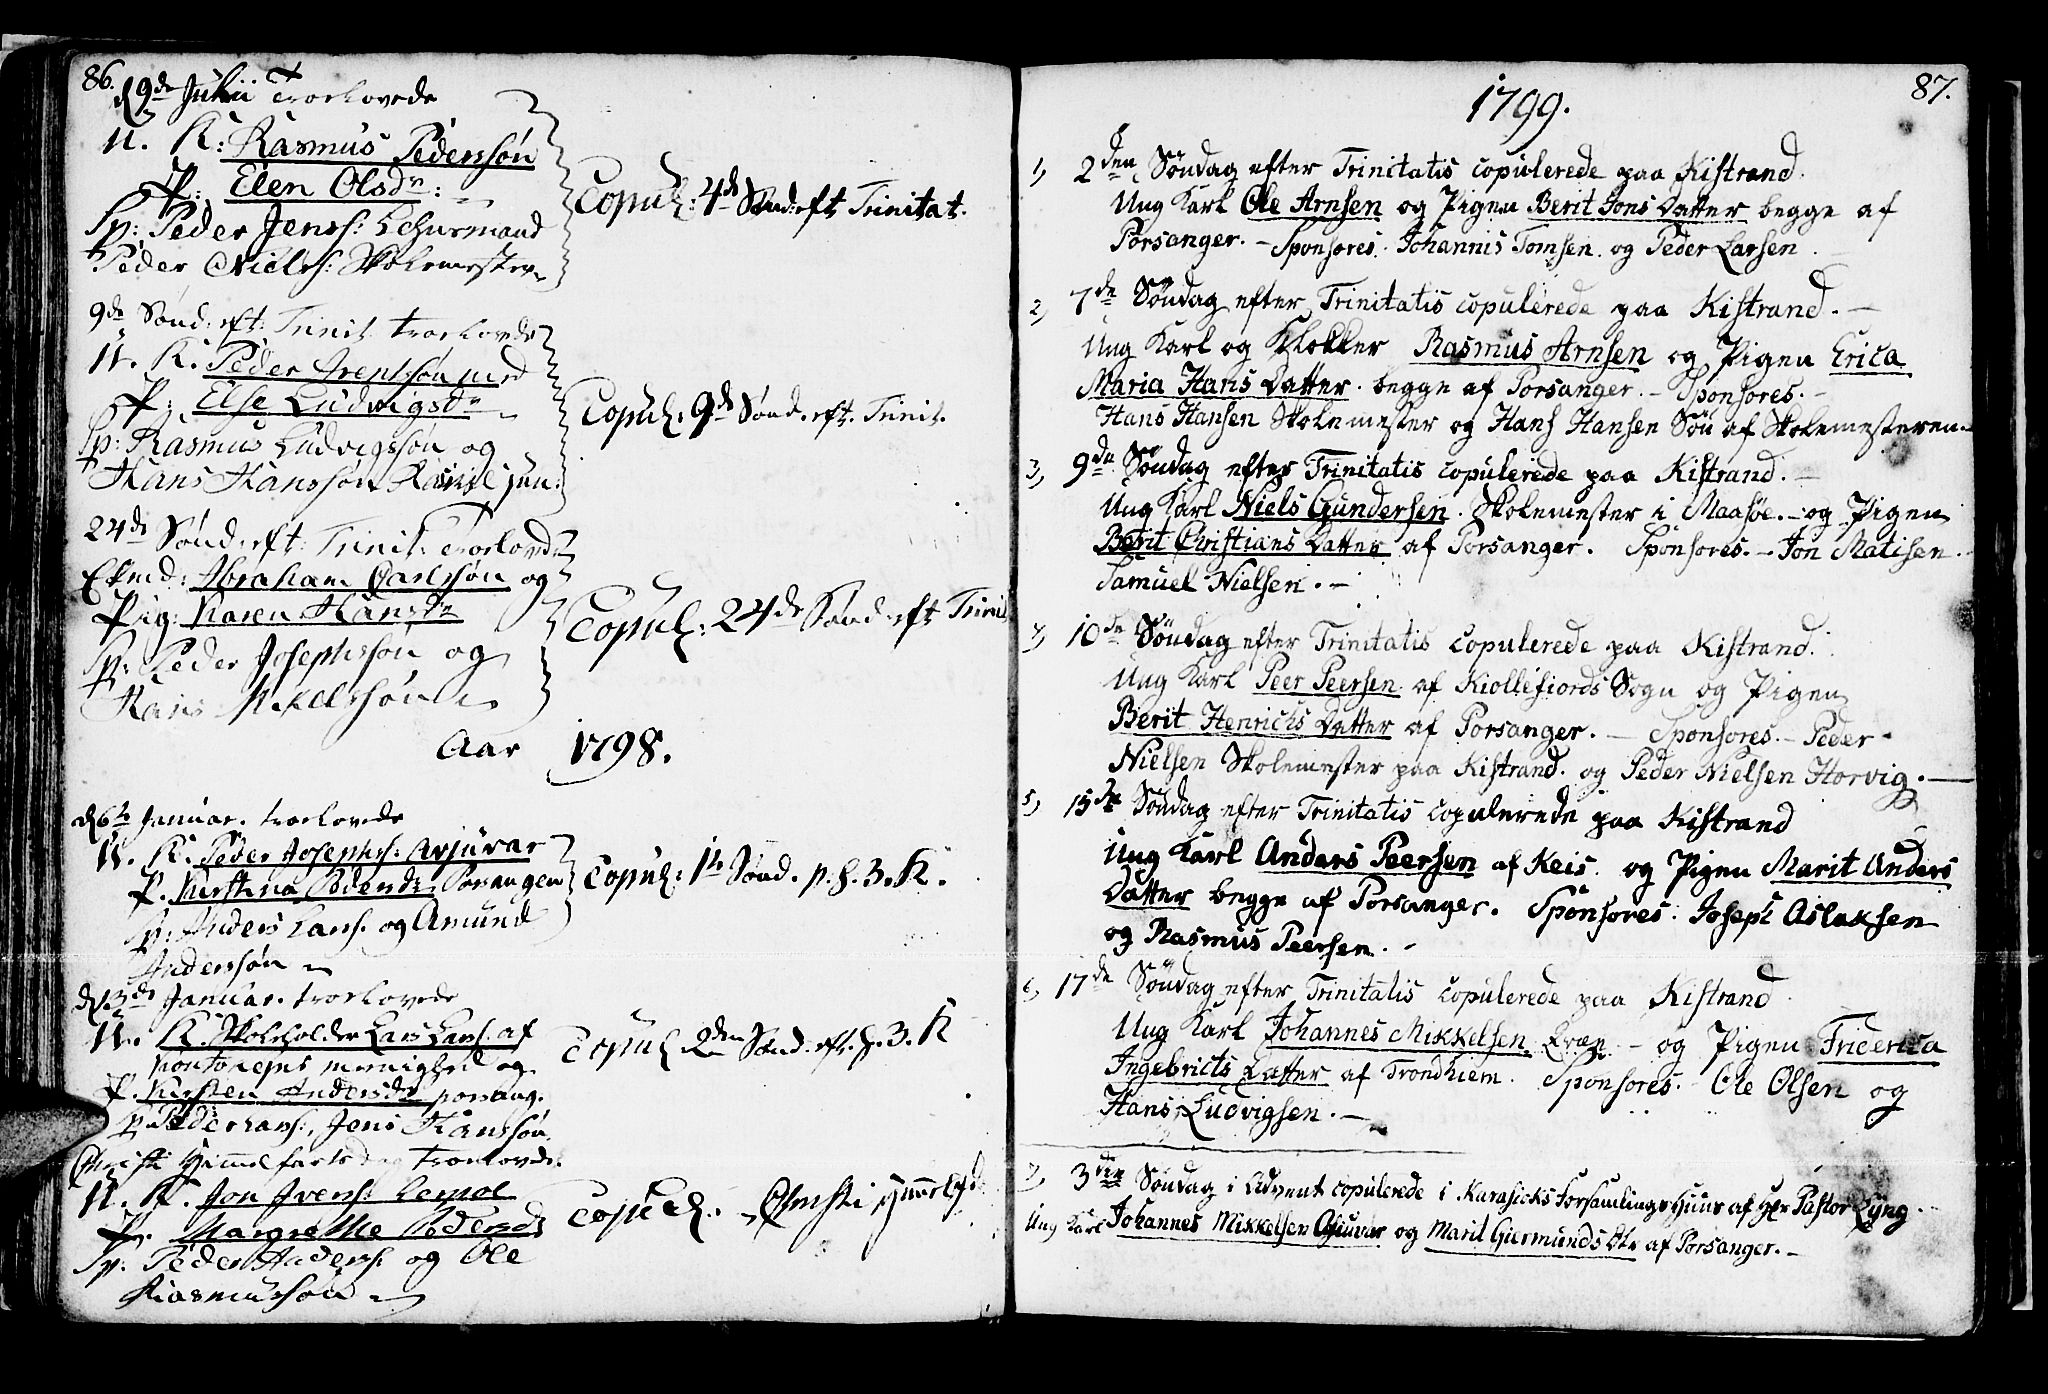 86.
d 9de Julii Troelovede
U. K: Rasmus Pedersøn
P: Elen Olsdr:
Sp: Peder Jenss: Schurmand
Peder Niels: Skolemester
Copul: 4de Sønd: eft Trinitat.
9de Sønd: eft: Trinit troelovede
U. K. Peder Irentsøn med
P: Else Ludvigsdr
Sp: Rasmus Ludvigssøn og
Hans Hanssøn jun:
Copul: 9de Sønd. eft. Trinit.
24de Sønd: eft: Trinit: Troelovede
Ekmd: Abraham Carlssøn og
Pig: Karen Hansdr
Sp: Peder Josephssøn og
Hans
Copul: 24de Sønd: eft Trinit
Aar 1798.
d 6te Januar. troelovede
U. K. Peder Josephs: Avjuvar
P. Kirstina Pedersdr Porsanger
Sp: Anders Lars: og Amund
Anderssøn
Copul: 1te Sønd. p. H. 3. K.
d 13de Januar. troelovede
U. K. Skoleholder Lars Lars: af
Kontokeins menighed og
P. Kirsten Andersdr porsang.
Sp Peder Lars:, Jens Hanssøn
Copul 2den Sønd: eft. H. 3. K
Christi Himmelfarts dag Troelovede
U. K. Jon Ivers:
P. Margrethe Pedersdr
Sp: Peder Anders: og Ole
Rasmussøn
Copul: Christi Himelfd
87.
1799.
1, 2den Søndag efter Trinitatis copulerede paa Kistrand.
Ung Karl Ole Arnsen og Pigen Berit Jons Datter begge af
Porsanger. - Sponsores. Johannis Tomsen. og Peder Larsen.
2, 7de Søndag efter Trinitatis copulerede paa Kistrand. -
Ung Karl og Klokker Rasmus Arnsen og Pigen Erica
Maria Hans Datter. begge af Porsanger. - Sponsores. -
Hans Hansen Skolemester og Hans Hansen Søn af Skolemesteren. -
3, 9de Søndag efter Trinitatis copulerede paa Kistrand. -
Ung Karl Niels Gundersen. Skolemester i Maasøe. - og Pigen
Berit Christians Datter af Porsanger. Sponsores. - Jon Matisen.
Samuel Nielsen. -
10de Søndag efter Trinitatis copulerede paa Kistrand.
Ung Karl Peer Peersen. af Kiollefiords Sogn og Pigen
Berit Henrichs Datter af Porsanger. - Sponsores. - Peder
Nielsen Skolemester paa Kistrand. og Peder Nielsen Horvig. -
5, 15de Søndag efter Trinitatis copulerede paa Kistrand
Ung Karl Anders Peersen af Keis. og Pigen Marit Anders
Datter begge af Porsanger. Sponsores. Joseph Aslaksen
og Rasmus Peersen. -
6, 17de Søndag efter Trinitatis copulerede paa Kistrand.
Ung Karl Johannes Mikkelsen Qvæn - og Pigen Friderica
Ingebricts Datter af Trondhiem. Sponsores. - Ole Olsen og
Hans Ludvigsen. -
7, 3die Søndag i Advent copulerede i Karasjocks Forsamlings Huus af Hr Pastor Lyng.
Ung Karl Johannes Mikkelsen og Marit Giermunds Dtr af Porsanger. -